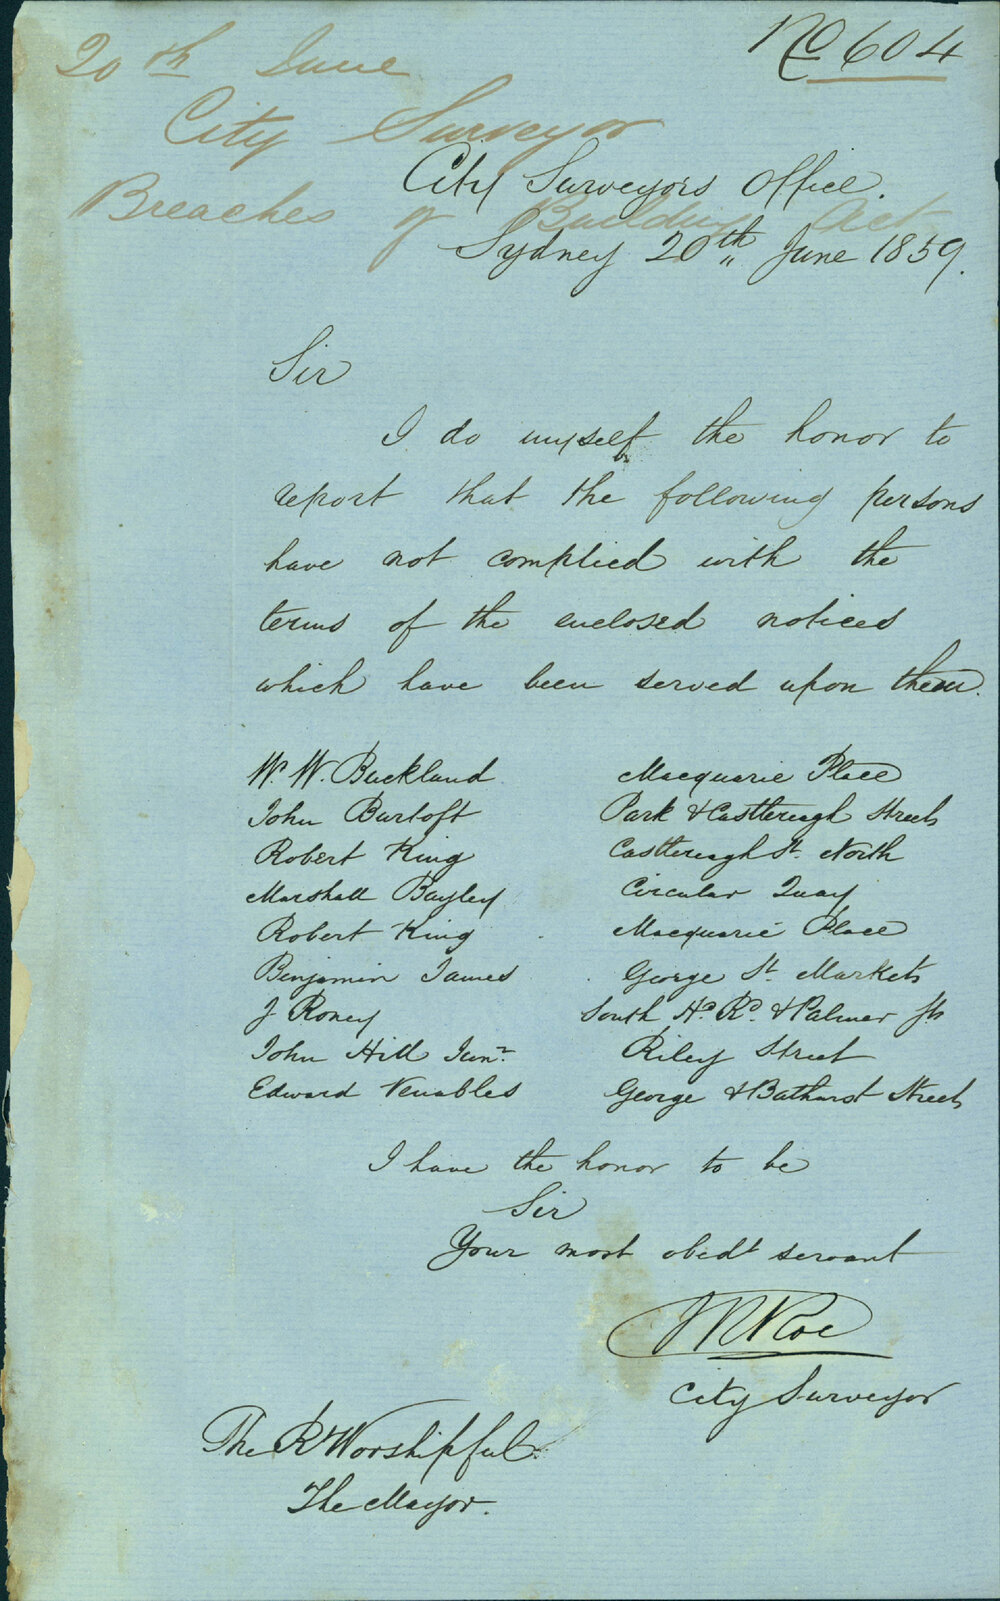 No 604
20th June
City Surveyor
Breaches of Building Act
City Surveyors Office.
Sydney 20th June 1859.
Sir
I do myself the honor to
report that the following persons
have not complied with the
terms of the enclosed notices
which have been served upon them.
W. W. Buckland Macquarie Place
John Burtoft Park & Castlereagh Streets
Robert King Castlereagh St. North
Marshall Bayley Circular Quay
Robert King Macquarie Place
Benjamin James George St. Markets
J Roney South Hd. Rd. & Palmer Sts
John Hill Junr. Riley Street
Edward Venables George & Bathurst Streets
I have the honor to be
Sir
Your most obedt servant
City Surveyor
The Rt Worshipful
The Mayor.